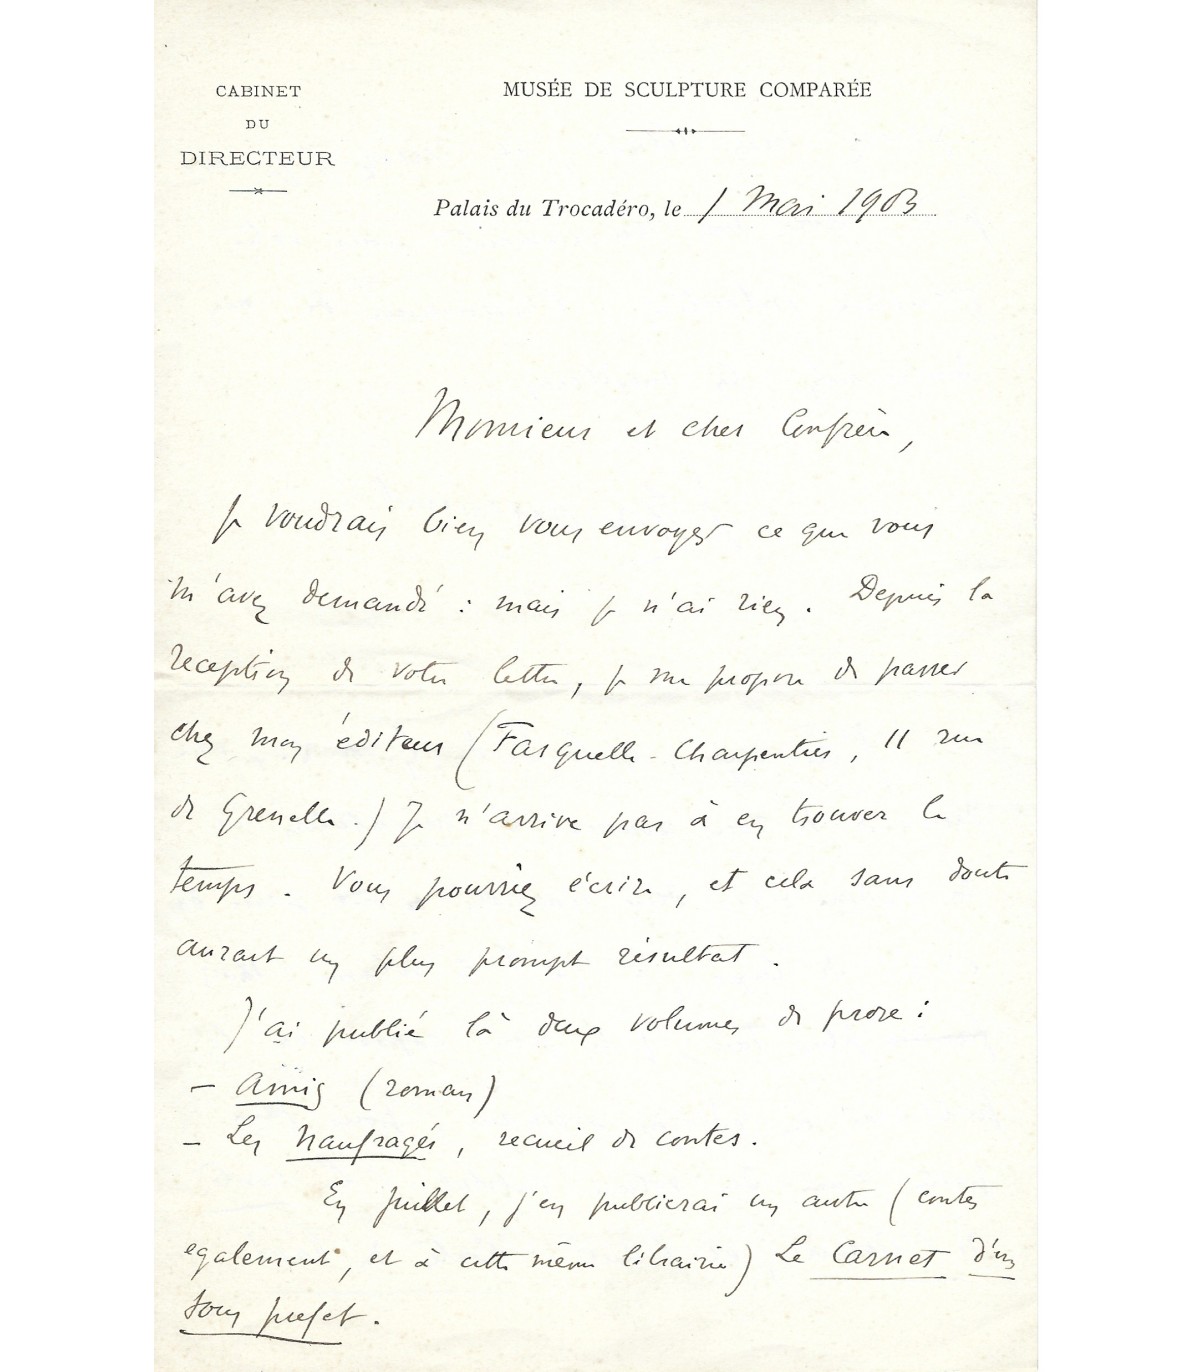 CABINET
DU
DIRECTEUR
MUSÉE DE SCULPTURE COMPARÉE
Palais du Trocadéro, le 1 Mai 1903
Monsieur et cher Confrère,
Je voudrais bien vous envoyer ce que vous
m'avez demandé : mais je n'ai rien. Depuis la
reception de votre lettre, je me propose de passer
chez mon éditeur (Fasquelle-Charpentier, 11 rue
de Grenelle.) Je n'arrive pas à en trouver le
temps. Vous pourriez écrire, et cela sans doute
aurait un plus prompt résultat.
J'ai publié là deux volumes de prose :
- Amis (roman)
- Les Naufragés, recueil de contes.
En juillet, j'en publierai un autre (contes
egalement, et à cette même librairie) Le Carnet d'un
sous prefet.